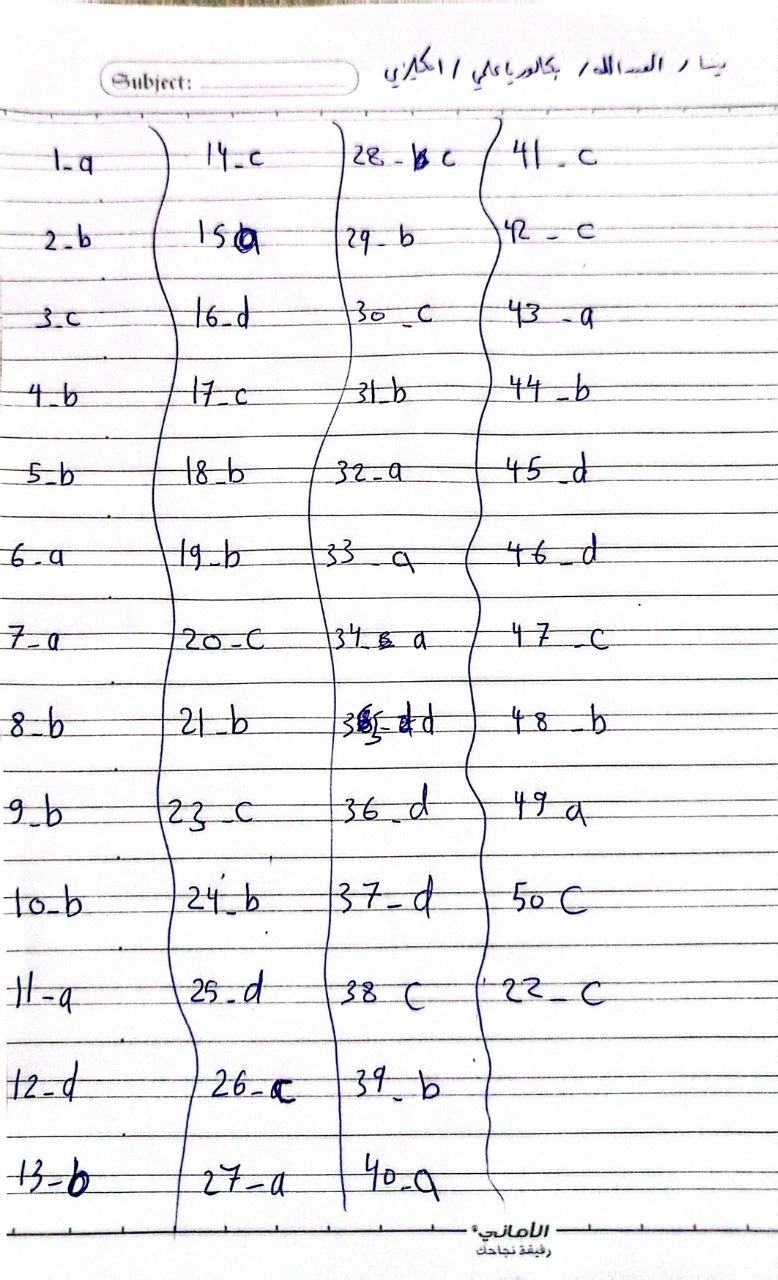 Subject:
العبدالله / بكالوريا علمي / انكليزي
1-a
2-b
3-c
4-b
5-b
6-a
7-a
8-b
9-b
10-b
11-a
12-d
13-b
14-c
15 a
16-d
17-c
18-b
19-b
20-c
21-b
23-c
24-b
25-d
26-c
27-a
28-c
29-b
30-c
31-b
32-a
33-a
34-a
35-d
36-d
37-d
38 c
39-b
40-a
41-c
42-c
43-a
44-b
45-d
46-d
47-c
48-b
49 a
50 c
22-c
الأماني
رفيقة نجاحك